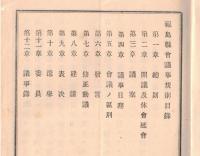 福島縣會議事規則目錄
第一章 總則
第二章 開議及休會延會
第三章 議案
第四章 議事日程
第五章 會議ノ區別
第六章 發言
第七章 修正動議
第八章 建議
第九章 表决
第十章 懲罰
第十一章 委員
第十二章 議事錄